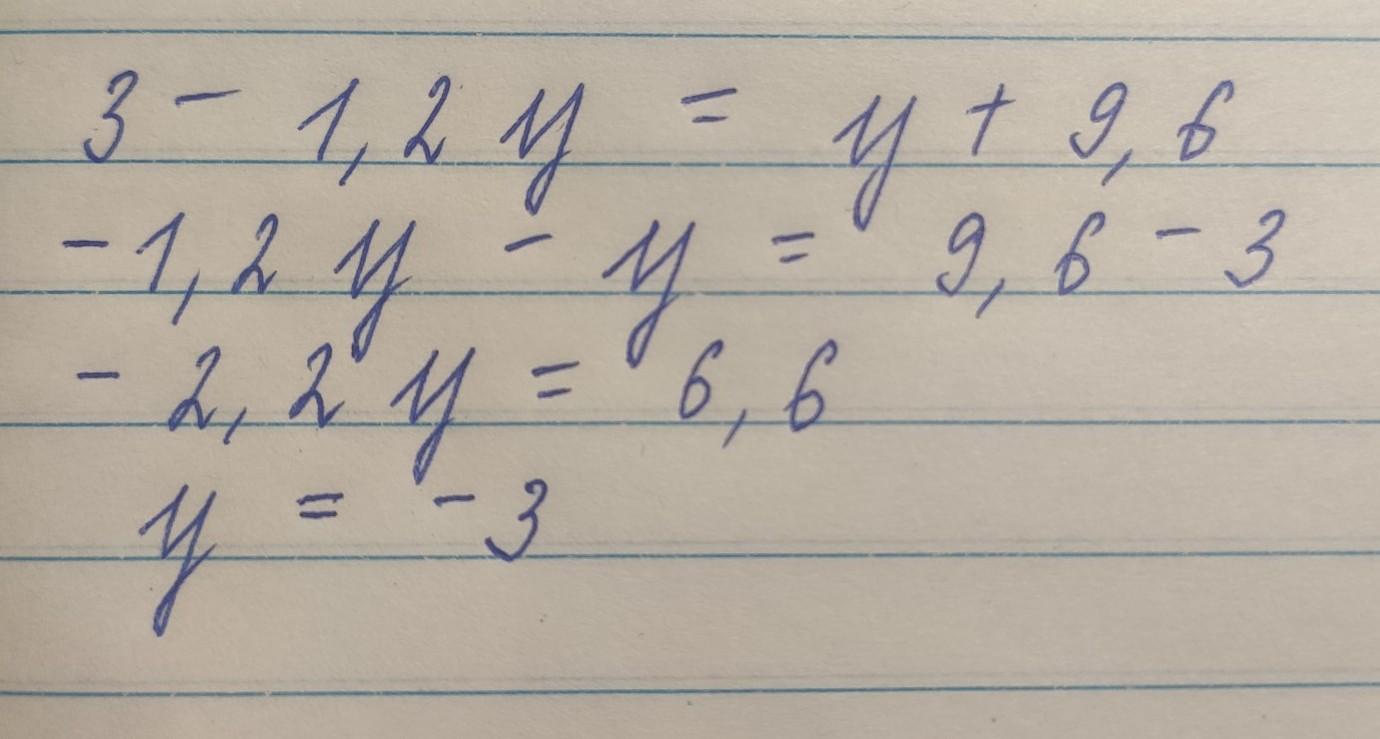 3 - 1,2 y = y + 9,6
- 1,2 y - y = 9,6 - 3
- 2,2 y = 6,6
y = - 3